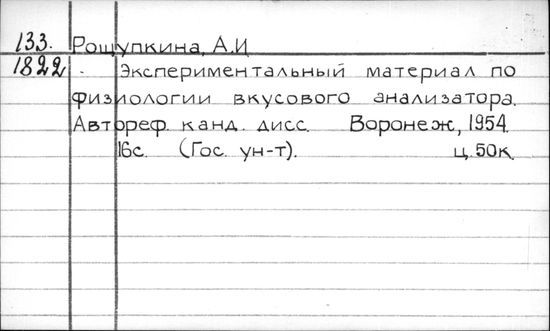 133. Рощупкина, А.И
1822 Экспериментальный материал по
физиологии вкусового анализатора.
Автореф. канд. дисс. Воронеж, 1954.
16с. (Гос. ун-т). ц. 50к.